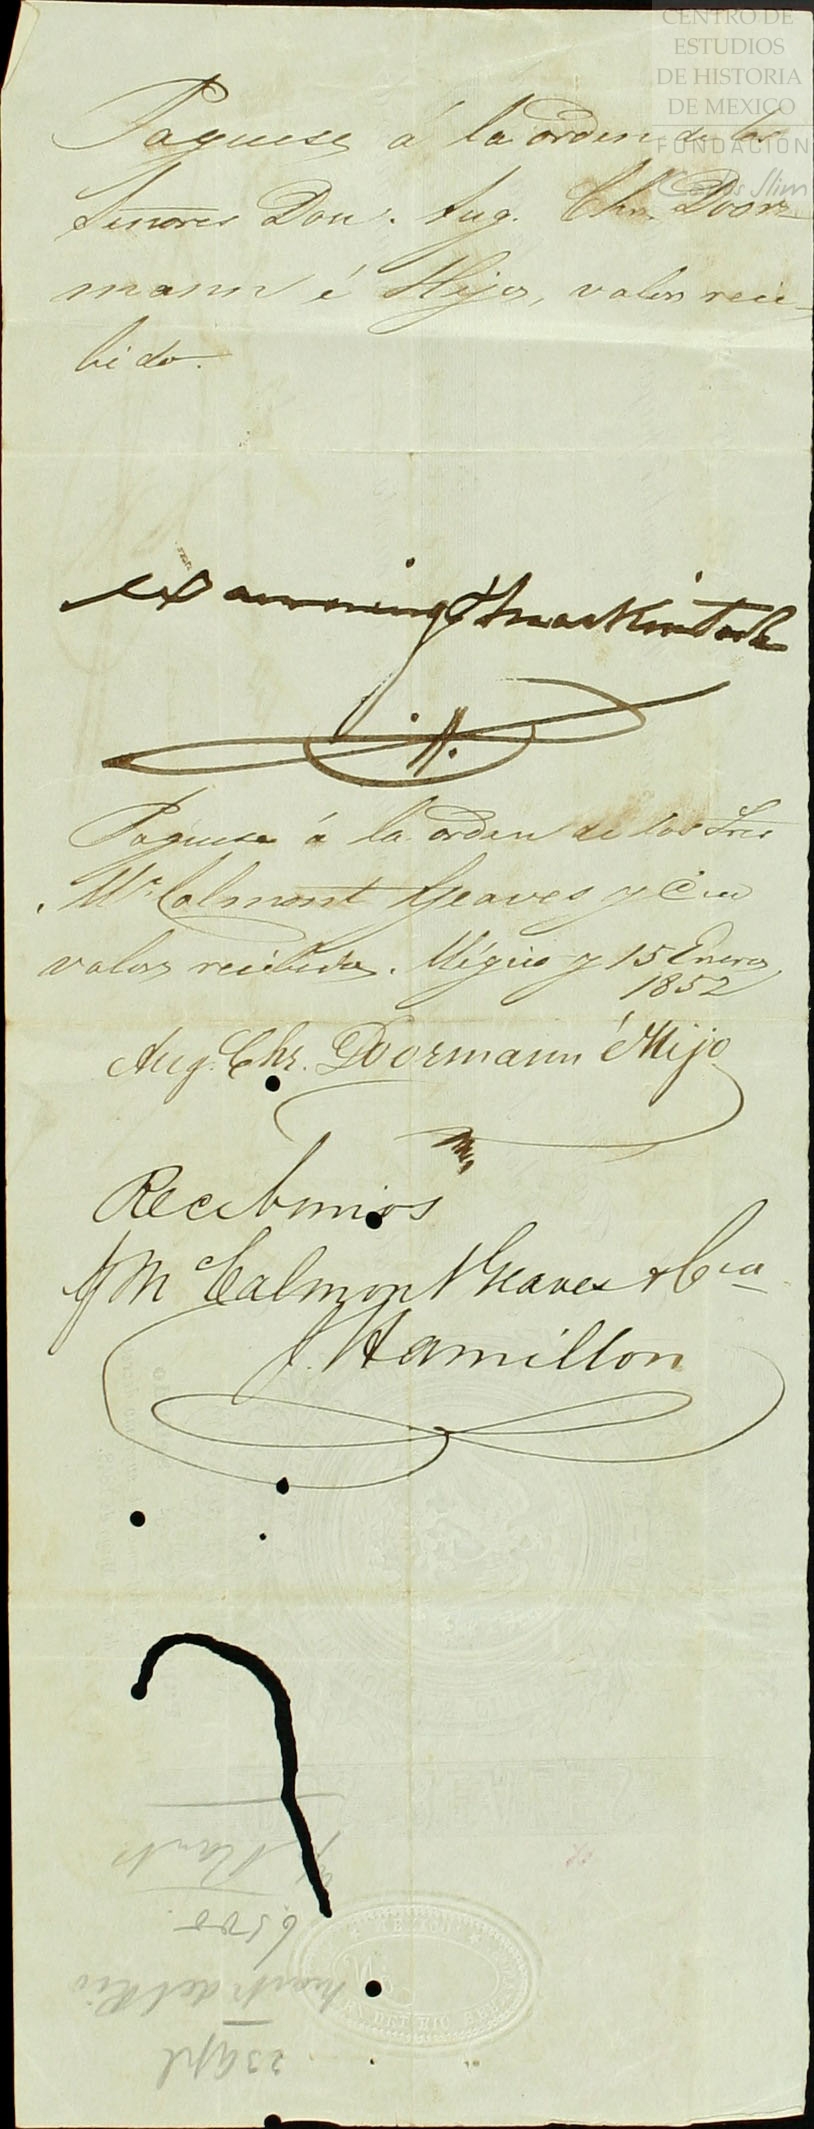 CENTRO DE
ESTUDIOS
DE HISTORIA
DE MEXICO
FUNDACIÓN
Carlos Slim
Paguese á la orden de los
Señores Don. Aug. Chr. Door-
mann é Hijo, valor reci-
bido.
Manning y Mackintosh
Paguese á la orden de los Sres
McCalmont Geaves y Cia
valor recibido. Mégico y 15 Enero
1852
Aug. Chr. Doormann é Hijo
Recibimos
McCalmont Geaves & Cia
J. Hamilton
6,500
Mart. del Rio
23 Apl